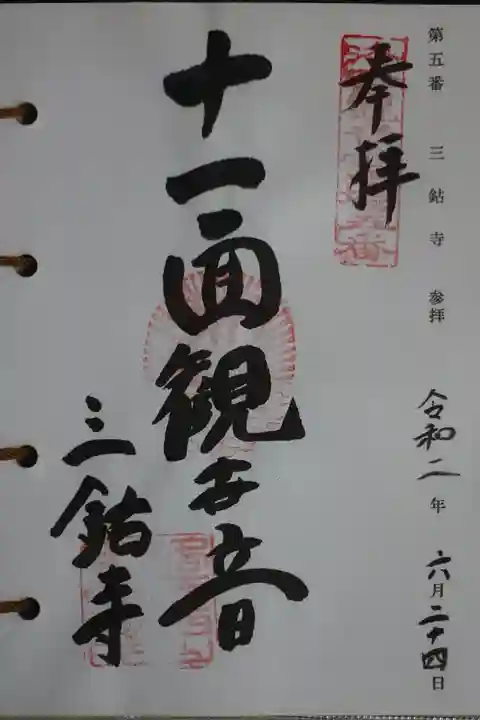 第五番 三鈷寺 参拝
令和二年 六月二十四日
奉拝
十一面観世音
三鈷寺